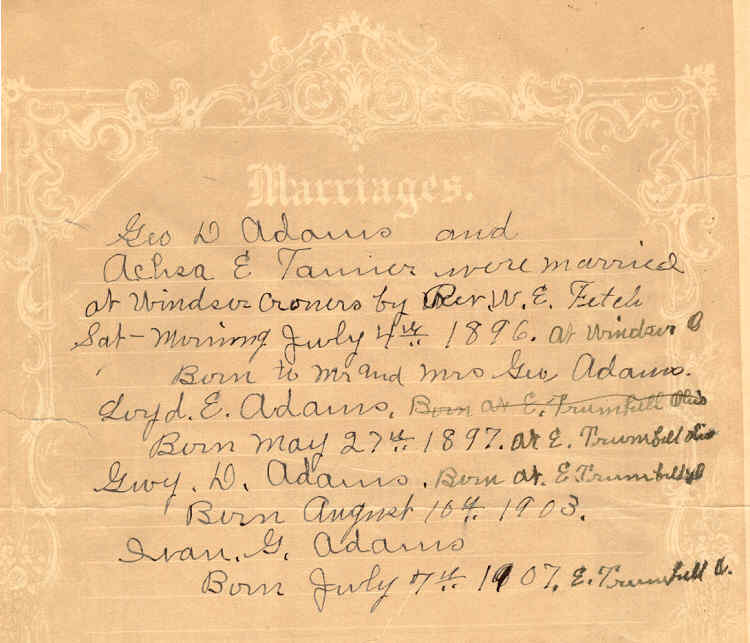 Marriages.
Geo D Adams and
Achsa E Tanner were married
at Windser Croners by Rev. W. E. Fetch
Sat - Morning July 4th 1896. at Windser O
Born to Mr and Mrs Geo Adams.
Loyd. E. Adams. Born at E. Trumbull Ohio
Born May 27th 1897. at E. Trumbull Ohio
Guy. D. Adams. Born at. E Trumbull O
Born August 10th 1903.
Ivan. G. Adams
Born July 7th 1907. E. Trumbull O.